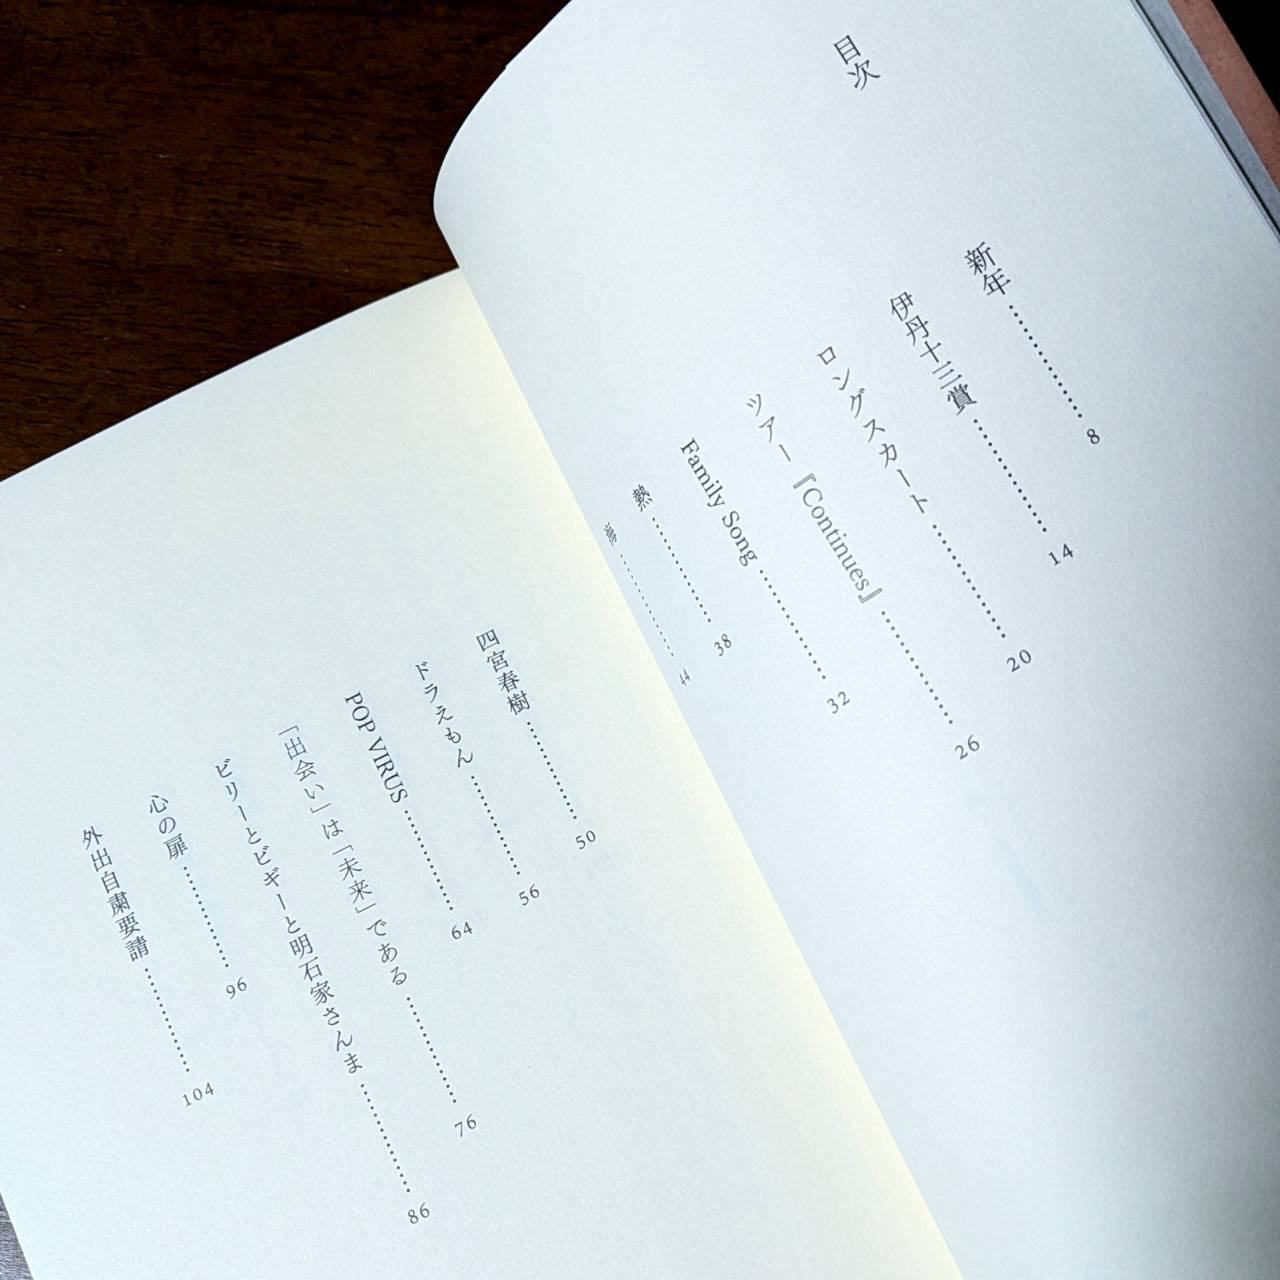 目次
新年…………8
伊丹十三賞…………14
ロングスカート…………20
ツアー『Continues』…………26
Family Song…………32
熱…………38
海…………44
四宮春樹…………50
ドラえもん…………56
POP VIRUS…………64
「出会い」は「未来」である…………76
ビリーとビギーと明石家さんま…………86
心の扉…………96
外出自粛要請…………104